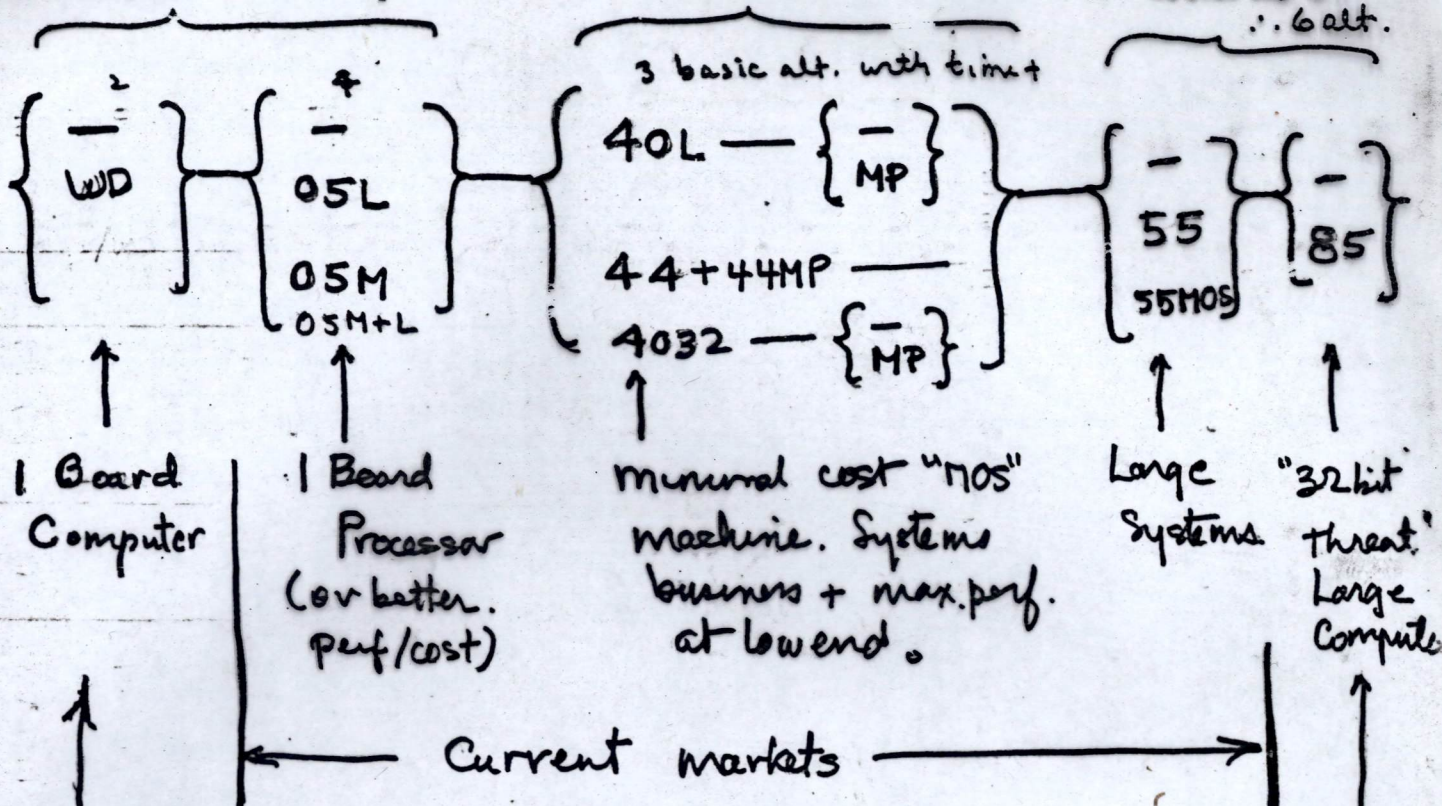 ∴ 6 alt.
3 basic alt. with time +
2
4
—
WD
—
05L
05M
05M+L
40L — { — MP }
44+44MP —
4032 — { — MP }
—
55
55MOS
—
85
1 Board
Computer
1 Board
Processor
(or better.
perf/cost)
minimal cost "MOS"
machine. Systems
business + max. perf.
at low end.
Large
Systems
"32 bit
threat"
Large
Compute
Current markets